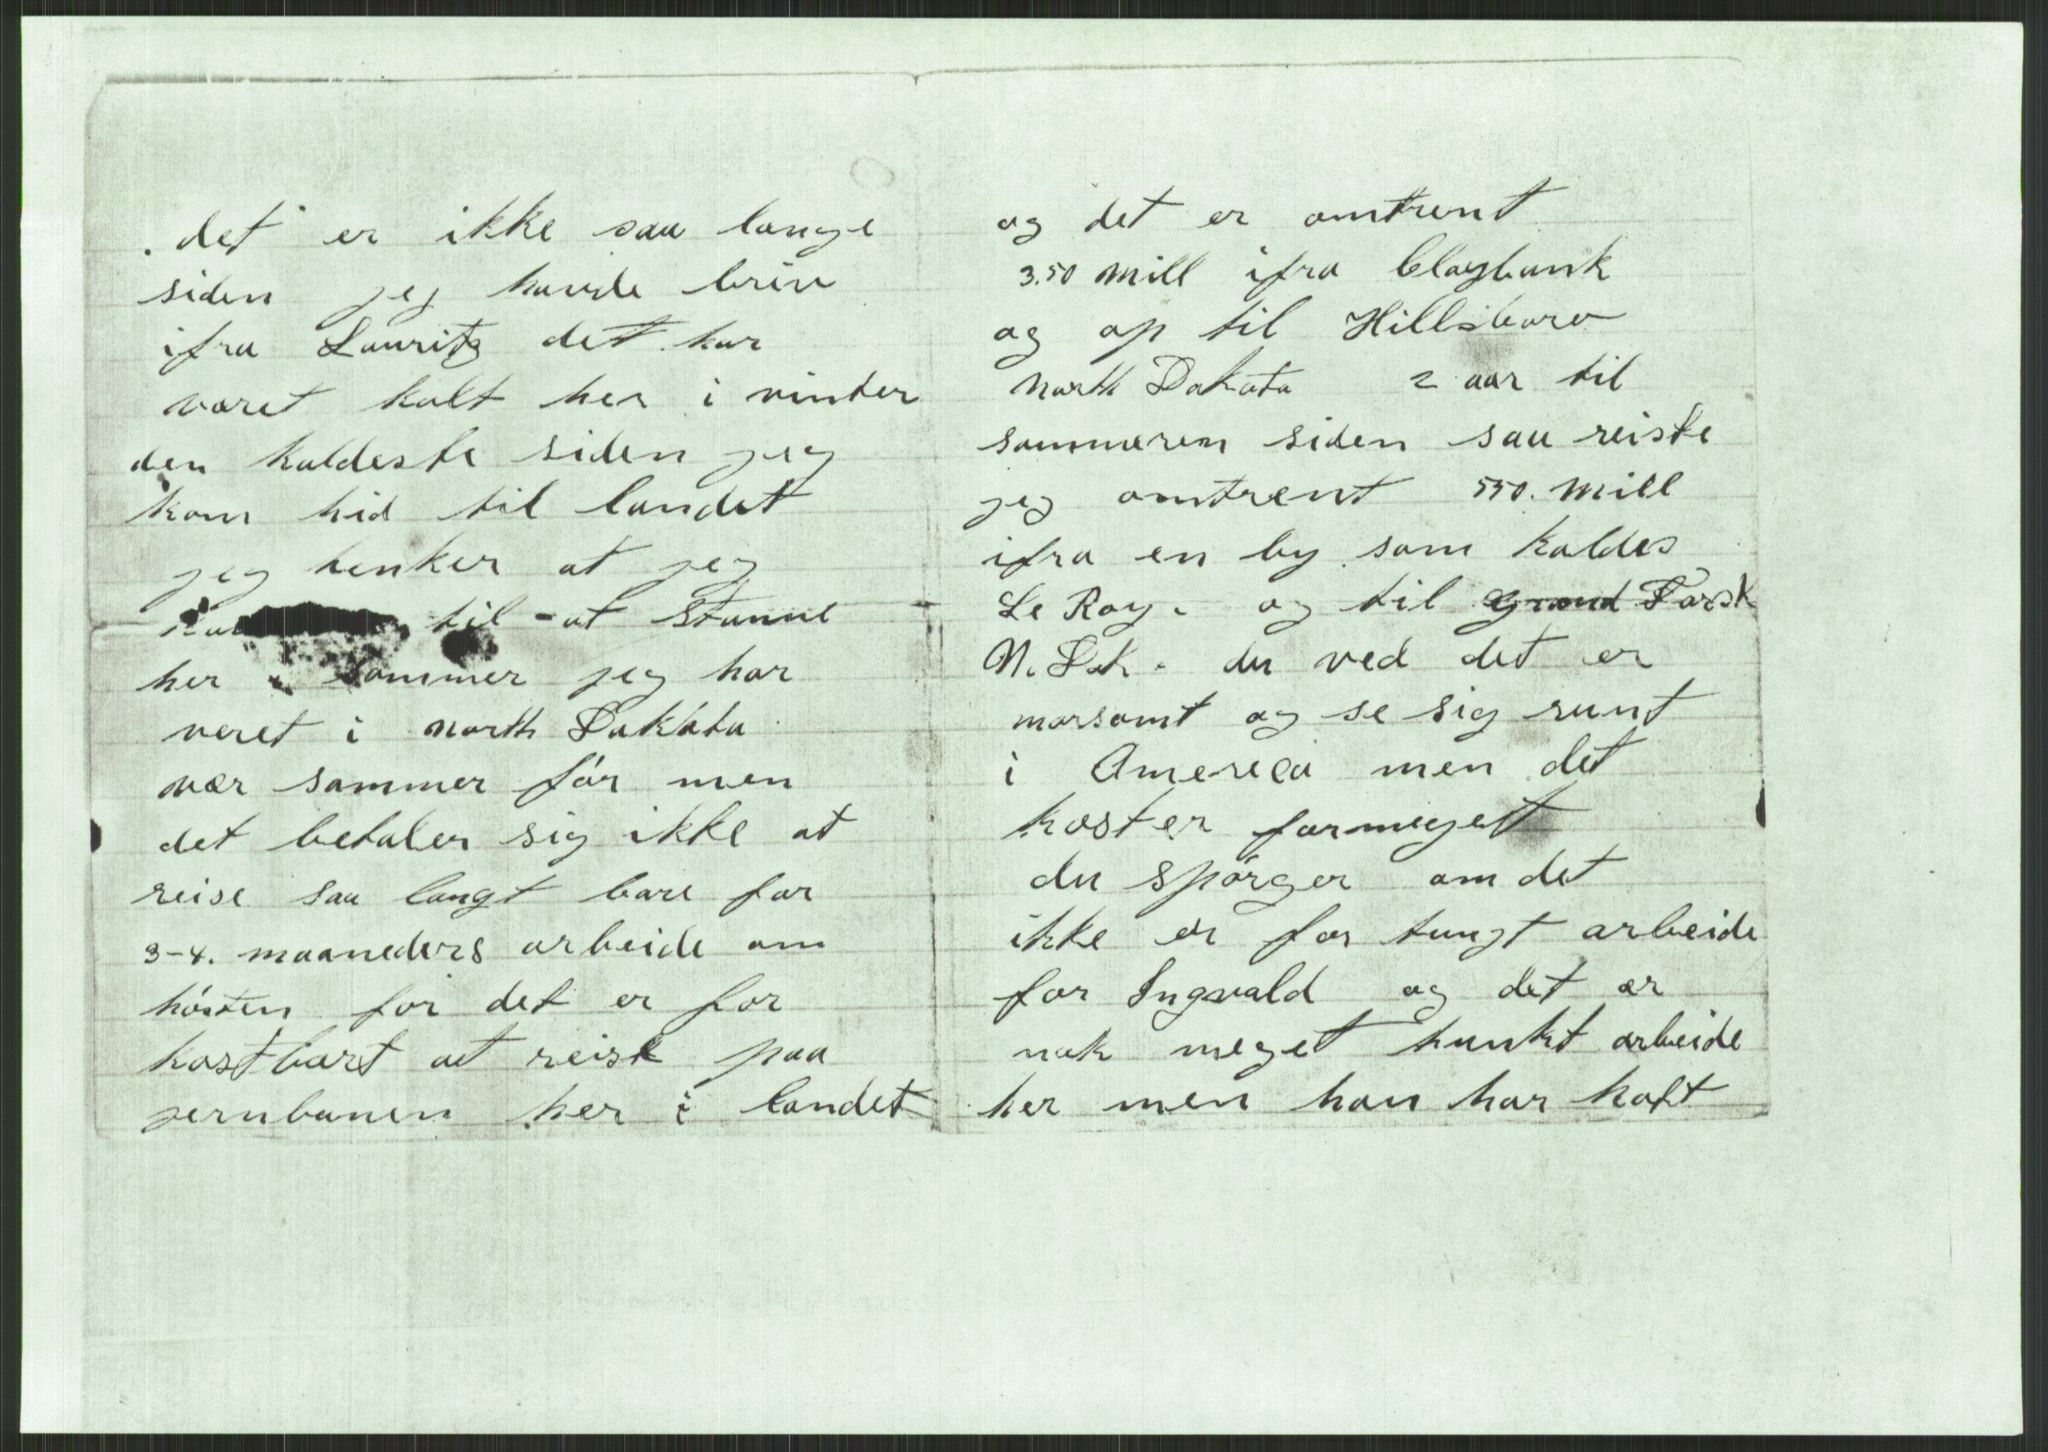 det er ikke saa lange
siden jeg havde brev
ifra Lauritz det har
været kalt her i vinter
den kaldeste siden jeg
kom hid til landet
jeg tenker at jeg
til at stanne
her i sommer jeg har
veret i north Dakkota
vær sommer før men
det betaler sig ikke at
reise saa langt bare for
3-4. maaneders arbeide om
hösten for det er for
kostbart at reise paa
jernbanen her i landet
og det er omtrent
3.50 mill ifra Claybank
og op til Hillsboro
north Dakota 2 aar til
sommeren siden saa reiste
jeg omtrent 550. mill
ifra en by som kaldes
Le Roy. og til Grand Forsk
N. Dak. du ved det er
morsomt og se sig runt
i America men det
koster formeget
du spörger om det
ikke er for tungt arbeide
for Ingvald og det er
nok meget tunkt arbeide
her men han har haft